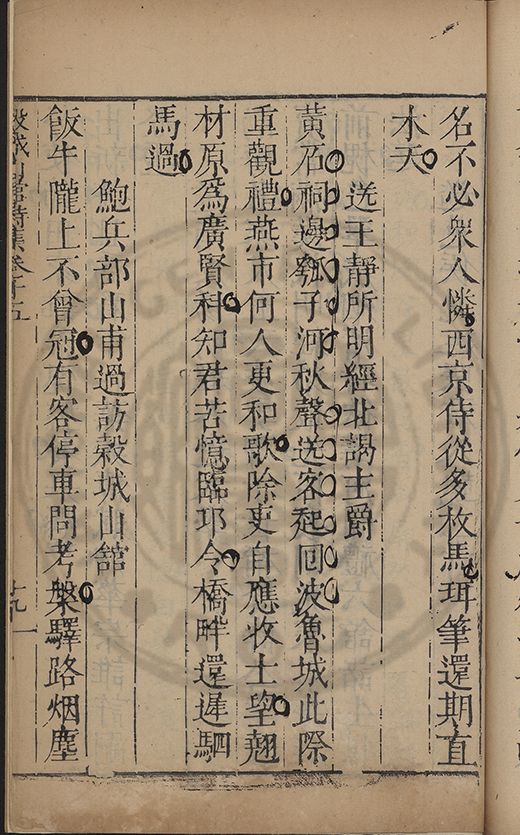 名不必衆人憐西京侍從多枚馬珥筆還期直
木天
送王靜所明經北謁主爵
黃石祠邊瓠子河秋聲送客起回波魯城此際
重觀禮燕市何人更和歌除吏自應收士望翹
材原爲廣賢科知君苦憶臨邛令橋畔還遲駟
馬過
鮑兵部山甫過訪榖城山舘
飯牛隴上不曾冠有客停車問考槃驛路烟塵
榖城山館詩集卷十五
十九